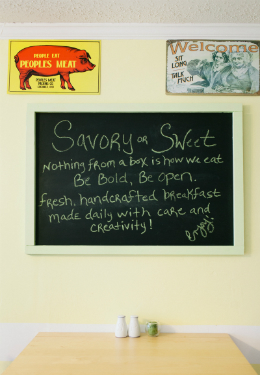 PEOPLE EAT
PEOPLES MEAT
Welcome
SIT LONG
TALK MUCH
Savory or Sweet
Nothing from a box is how we eat
Be Bold, Be open.
fresh, handcrafted breakfast
made daily with care and
creativity!
enjoy!